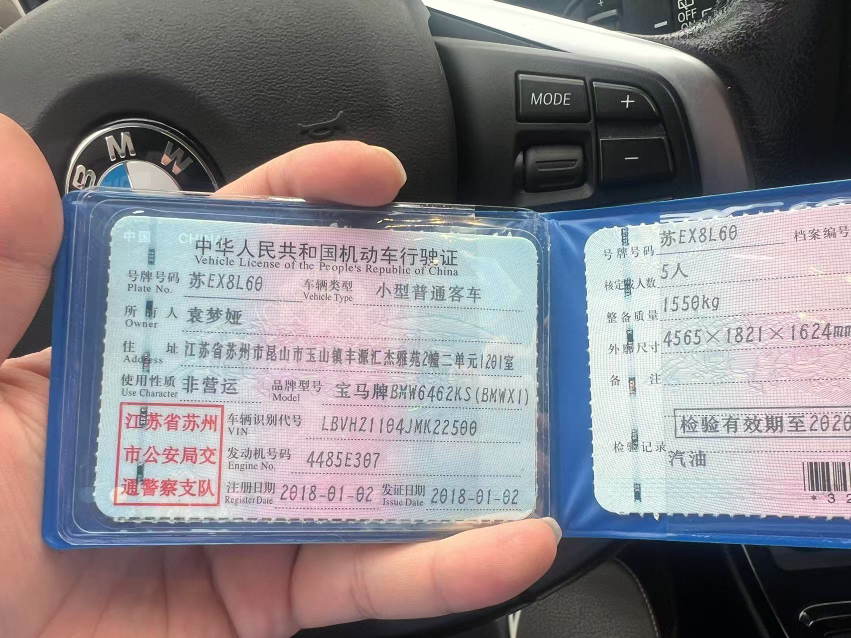 BMW
MODE
+
−
OFF
中国 CHINA
中华人民共和国机动车行驶证
Vehicle License of the People's Republic of China
号牌号码 苏EX8L60 车辆类型 小型普通客车
Plate No. Vehicle Type
所有人 袁梦娅
Owner
住址 江苏省苏州市昆山市玉山镇丰源汇杰雅苑2幢二单元1201室
Address
使用性质 非营运 品牌型号 宝马牌BMW6462KS(BMWX1)
Use Character Model
江苏省苏州
市公安局交
通警察支队
车辆识别代号 LBVHZ1104JMK22500
VIN
发动机号码 4485E307
Engine No.
注册日期 2018-01-02 发证日期 2018-01-02
Register Date Issue Date
号牌号码 苏EX8L60 档案编号
核定载人数 5人
整备质量 1550kg
外廓尺寸 4565×1821×1624mm
备注
检验有效期至2020
检验记录
汽油
*32